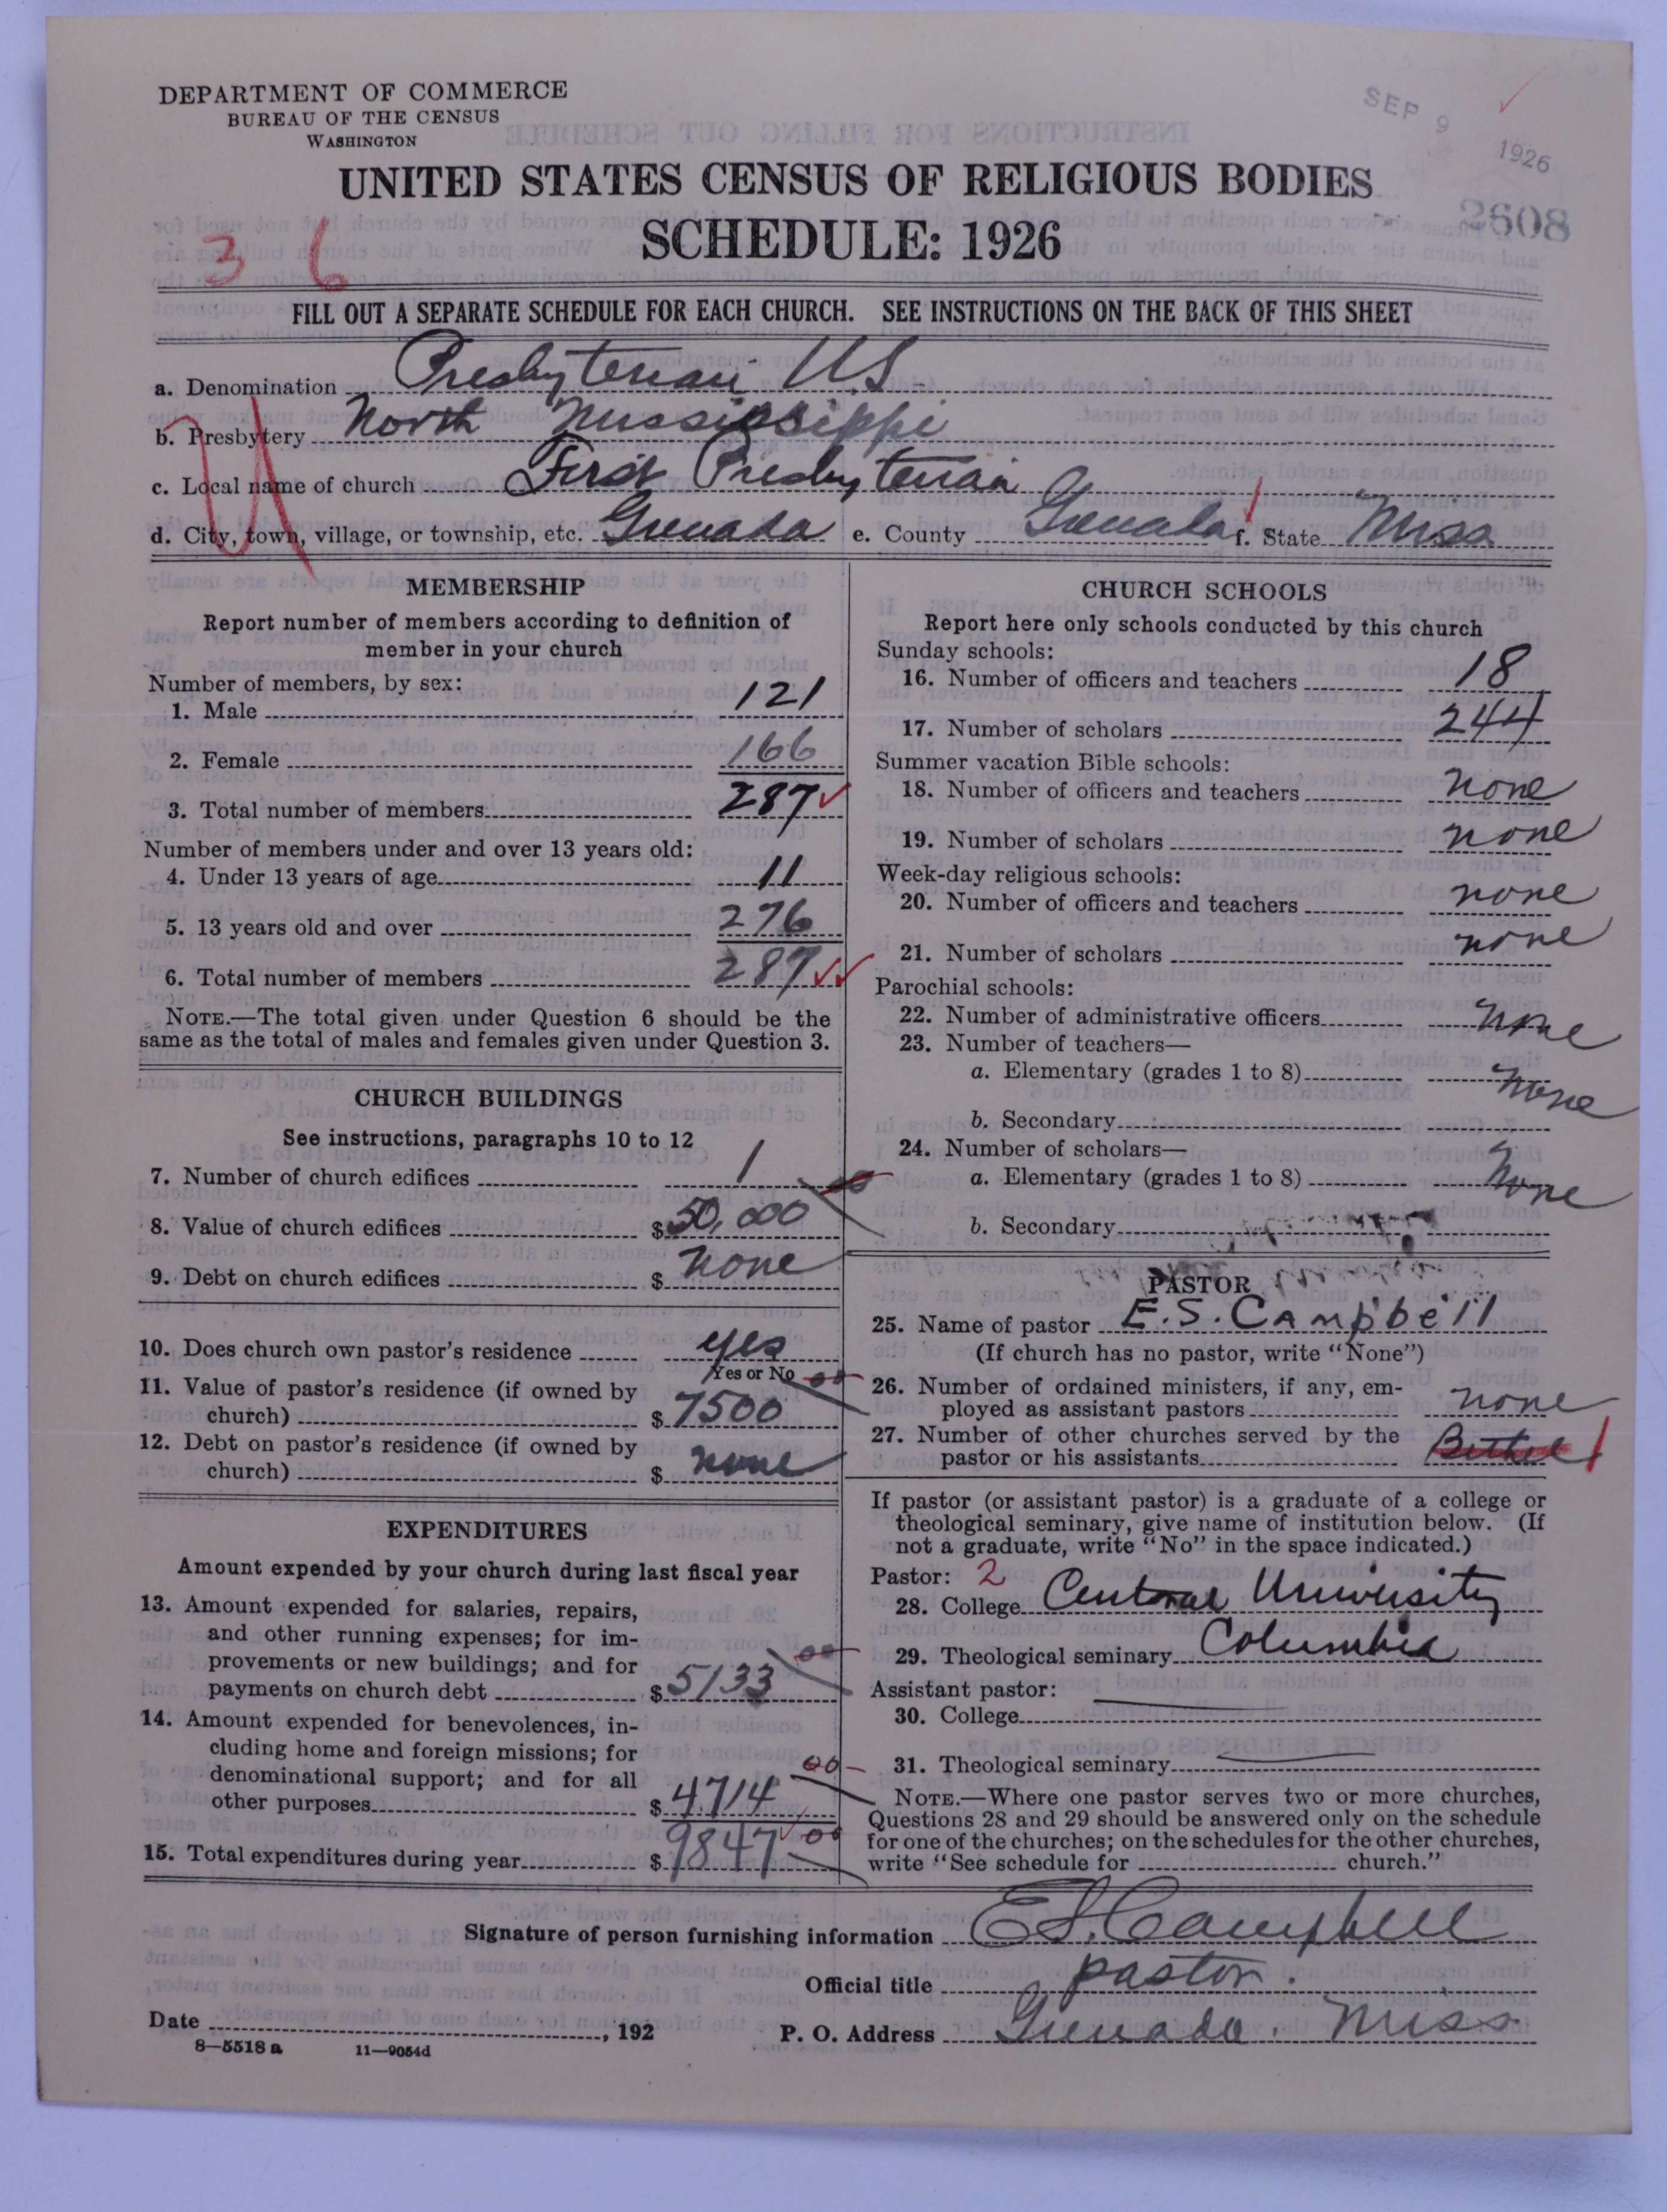 DEPARTMENT OF COMMERCE
BUREAU OF THE CENSUS
WASHINGTON
SEP 9 1926
UNITED STATES CENSUS OF RELIGIOUS BODIES
SCHEDULE: 1926
2608
3 6
FILL OUT A SEPARATE SCHEDULE FOR EACH CHURCH. SEE INSTRUCTIONS ON THE BACK OF THIS SHEET
a. Denomination Presbyterian US
b. Presbytery North Mississippi
c. Local name of church First Presbyterian
d. City, town, village, or township, etc. Grenada e. County Grenada f. State Miss
MEMBERSHIP
Report number of members according to definition of
member in your church
Number of members, by sex:
1. Male 121
2. Female 166
3. Total number of members 287
Number of members under and over 13 years old:
4. Under 13 years of age 11
5. 13 years old and over 276
6. Total number of members 287
NOTE.—The total given under Question 6 should be the
same as the total of males and females given under Question 3.
CHURCH BUILDINGS
See instructions, paragraphs 10 to 12
7. Number of church edifices 1
8. Value of church edifices $50,000 00
9. Debt on church edifices $ none
10. Does church own pastor's residence yes
Yes or No
11. Value of pastor's residence (if owned by
church) $ 7500 00
12. Debt on pastor's residence (if owned by
church) $ none
EXPENDITURES
Amount expended by your church during last fiscal year
13. Amount expended for salaries, repairs,
and other running expenses; for im-
provements or new buildings; and for
payments on church debt $5133 00
14. Amount expended for benevolences, in-
cluding home and foreign missions; for
denominational support; and for all
other purposes $ 4714 00
15. Total expenditures during year $ 9847 00
CHURCH SCHOOLS
Report here only schools conducted by this church
Sunday schools:
16. Number of officers and teachers 18
17. Number of scholars 244
Summer vacation Bible schools:
18. Number of officers and teachers none
19. Number of scholars none
Week-day religious schools:
20. Number of officers and teachers none
21. Number of scholars none
Parochial schools:
22. Number of administrative officers none
23. Number of teachers—
a. Elementary (grades 1 to 8) none
b. Secondary
24. Number of scholars—
a. Elementary (grades 1 to 8) none
b. Secondary
PASTOR
25. Name of pastor E.S. Campbell
(If church has no pastor, write "None")
26. Number of ordained ministers, if any, em-
ployed as assistant pastors none
27. Number of other churches served by the
pastor or his assistants Bethel 1
If pastor (or assistant pastor) is a graduate of a college or
theological seminary, give name of institution below. (If
not a graduate, write "No" in the space indicated.)
Pastor: 2
28. College Central University
29. Theological seminary Columbia
Assistant pastor:
30. College
31. Theological seminary
NOTE.—Where one pastor serves two or more churches,
Questions 28 and 29 should be answered only on the schedule
for one of the churches; on the schedules for the other churches,
write "See schedule for church."
Signature of person furnishing information E S. Campbell
Official title pastor.
Date , 192
P. O. Address Grenada. Miss
8—5518 a 11—9054d